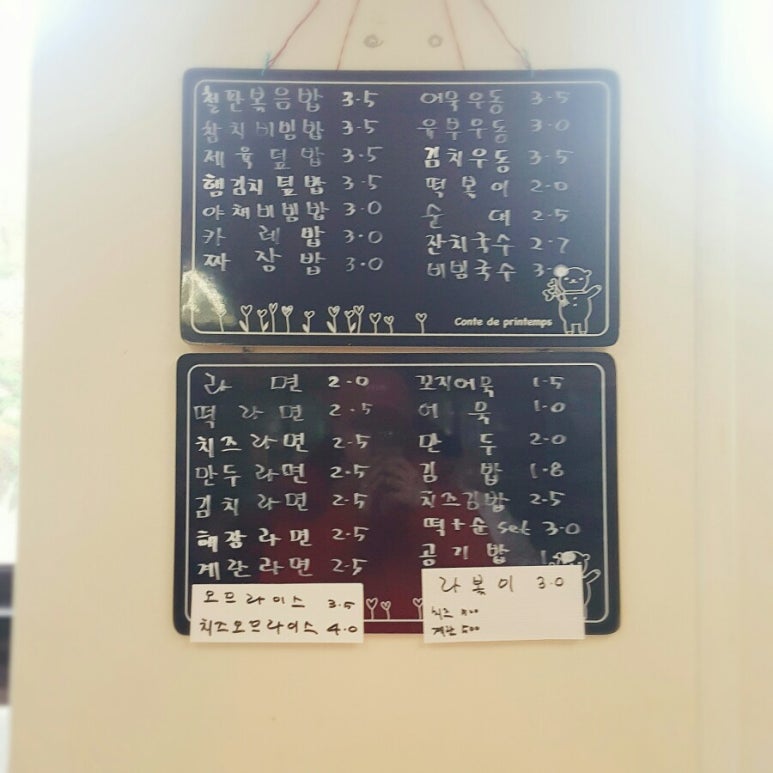 철판볶음밥 3.5
참치비빔밥 3.5
제육덮밥 3.5
햄김치덮밥 3.5
야채비빔밥 3.0
카레밥 3.0
짜장밥 3.0
어묵우동 3.5
유부우동 3.0
김치우동 3.5
떡볶이 2.0
순대 2.5
잔치국수 2.7
비빔국수 3.
Conte de printemps
라면 2.0
떡라면 2.5
치즈라면 2.5
만두라면 2.5
김치라면 2.5
해장라면 2.5
계란라면 2.5
오므라이스 3.5
치즈오므라이스 4.0
꼬지어묵 1.5
어묵 1.0
만두 2.0
김밥 1.8
치즈김밥 2.5
떡+순 set 3.0
공기밥
라볶이 3.0
치즈
계란 500